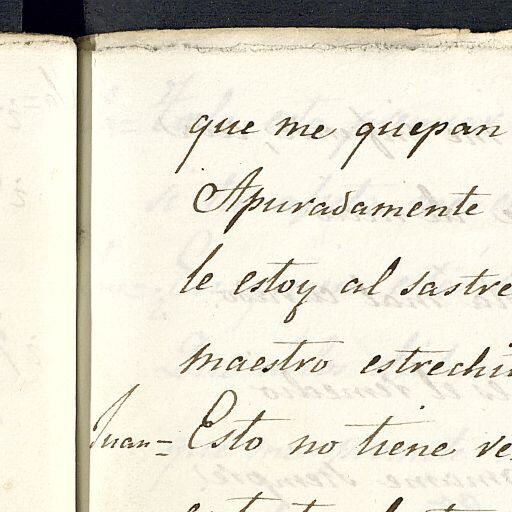 que me quepan
Apuradamente
le estoy al sastre
maestro
Juan= Esto no tiene